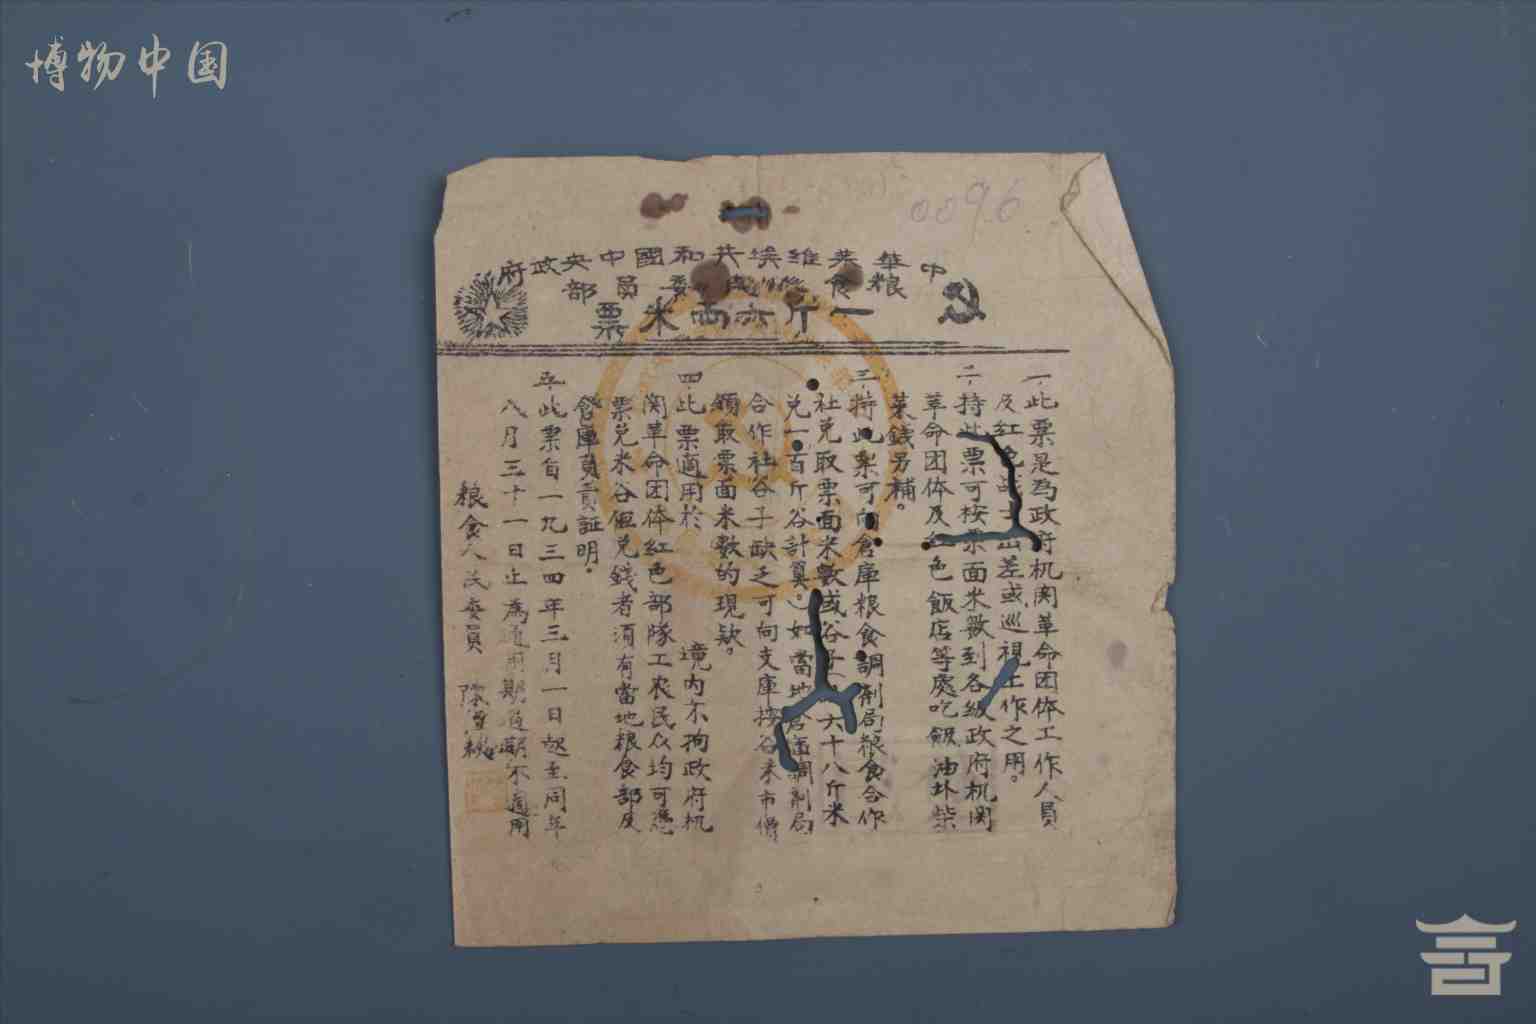 博物中国
0096
中華苏維埃共和國中央政府
粮食人民委員部
一斤六両米票
一.此票是为政府机関革命团体工作人員
及红色战士出差或巡視工作之用。
二.持此票可按票面米數到各级政府机関
革命团体及红色飯店等處吃飯油盐柴
菜錢另補。
三.持此票可向倉庫粮食調剤局粮食合作
社兑取票面米數或谷子(六十八斤米
兑一百斤谷計算。)如當地倉庫調剤局
合作社谷子缺乏可向支庫按谷米市價
領取票面米數的現欵。
四.此票適用於 境內不拘政府机
関革命团体红色部隊工农民众均可憑
票兑米谷但兑錢者須有當地粮食部及
倉庫負責証明.
五.此票自一九三四年三月一日起至同年
八月三十一日止為通用期過期不適用
粮食人民委員 陈潭秋